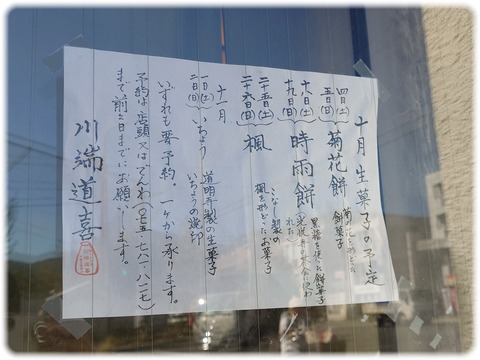 十月生菓子の予定
四日(土)
五日(日)
菊花餅
菊花をかたどった
餅菓子
十八日(土)
十九日(日)
時雨餅
黒糖を使った餅菓子
二十五日(土)
二十六日(日)
楓
こなし製の
楓を形どったお菓子
十一月
一日(土)
二日(日)
いちょう
道明寺製の生菓子
いちょうの焼印
いずれも要予約。一ヶから承ります。
予約は店頭又はでんわ(〇七五-七八一-八一一七)
まで前々日までにお願いします。
川端道喜